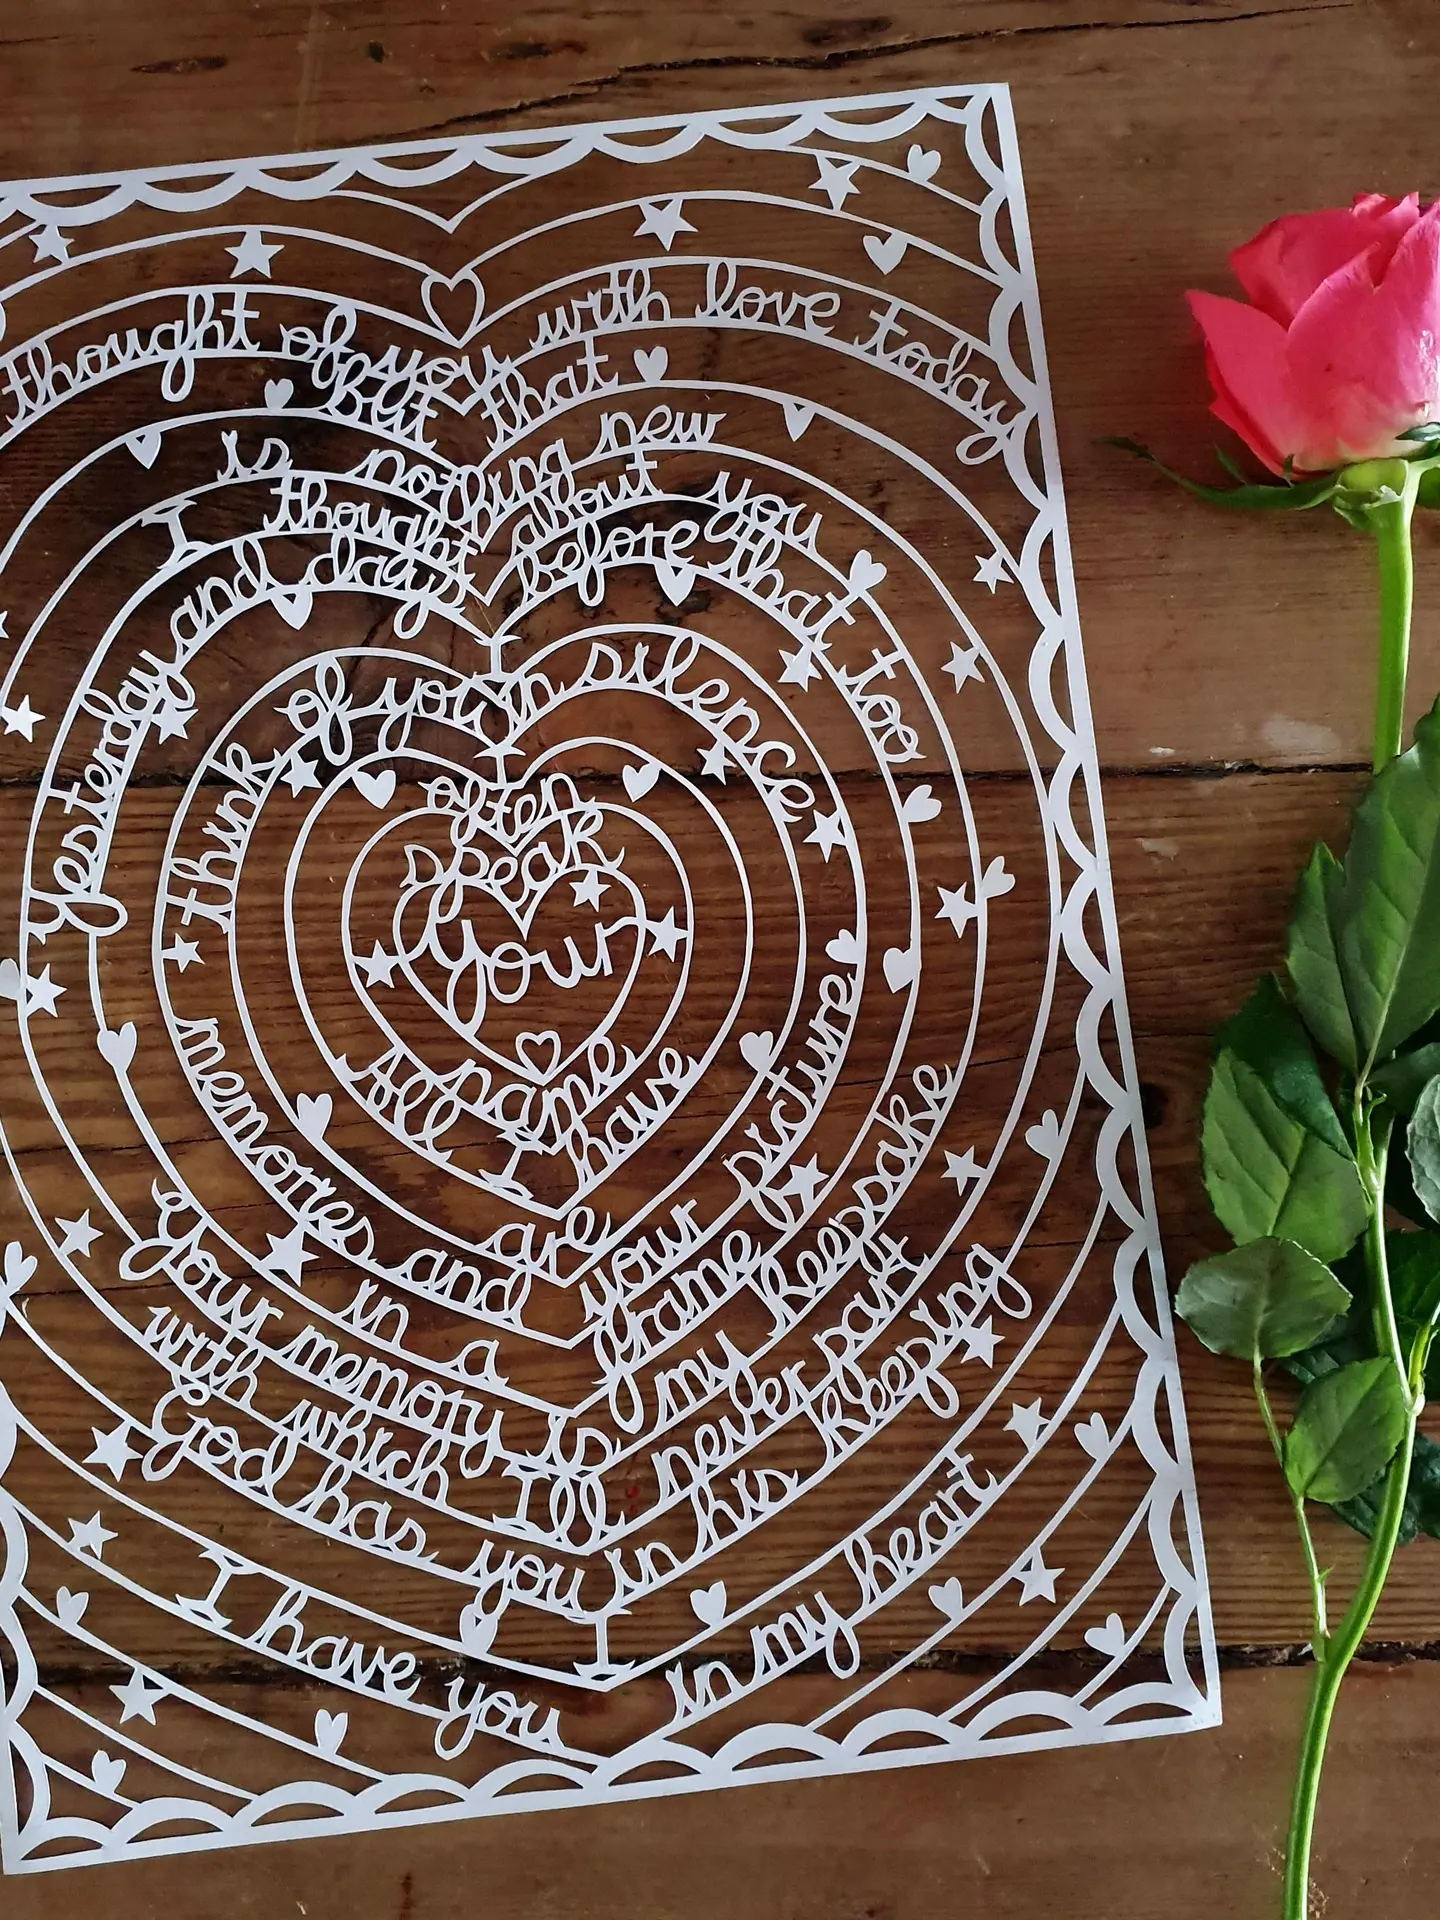 thought of you with love today
but that
is nothing new
I thought about you
Yesterday and days before that too
I
think of you in silence
I
often
speak
your
name
All I have
are
memories and your picture
in a frame
Your memory is my keepsake
with which I'll never part
God has you in his keeping
I have you in my heart